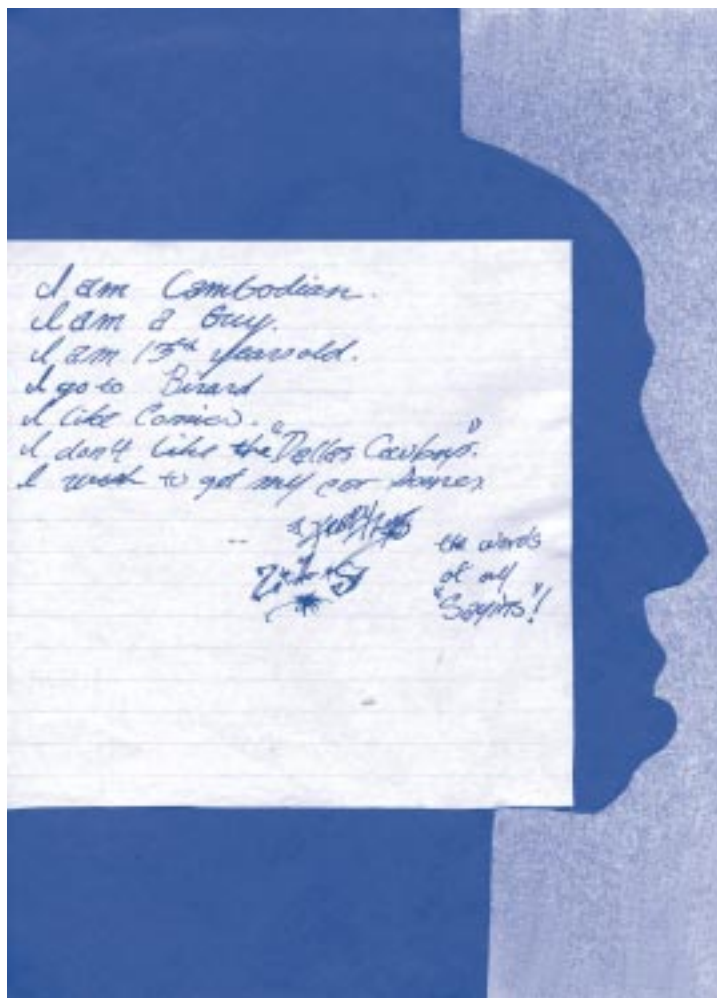 I am Cambodian.
I am a Guy.
I am 15th years old.
I go to
I like Comics.
I don't like the "Dallas Cowboys".
I wish to get my
the words
of my
"Sayins"!